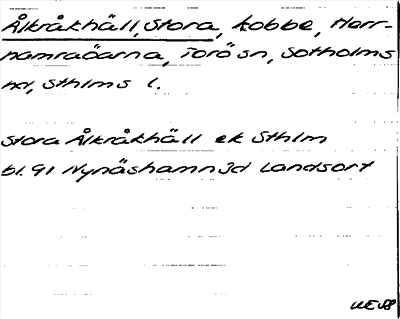 Ålkråkhäll, Stora, kobbe, Herr-
hamraöarna, Torö sn, Sotholms
hd, Sthlms l.
Stora Ålkråkhäll ek Sthlm
bl. 91 Nynäshamn Jd Landsort